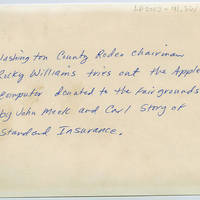 Washington County Rodeo chairman
Ricky Williams tries out the Apple
computer donated to the fairgrounds
by John Meek and Carl Story of
Standard Insurance.